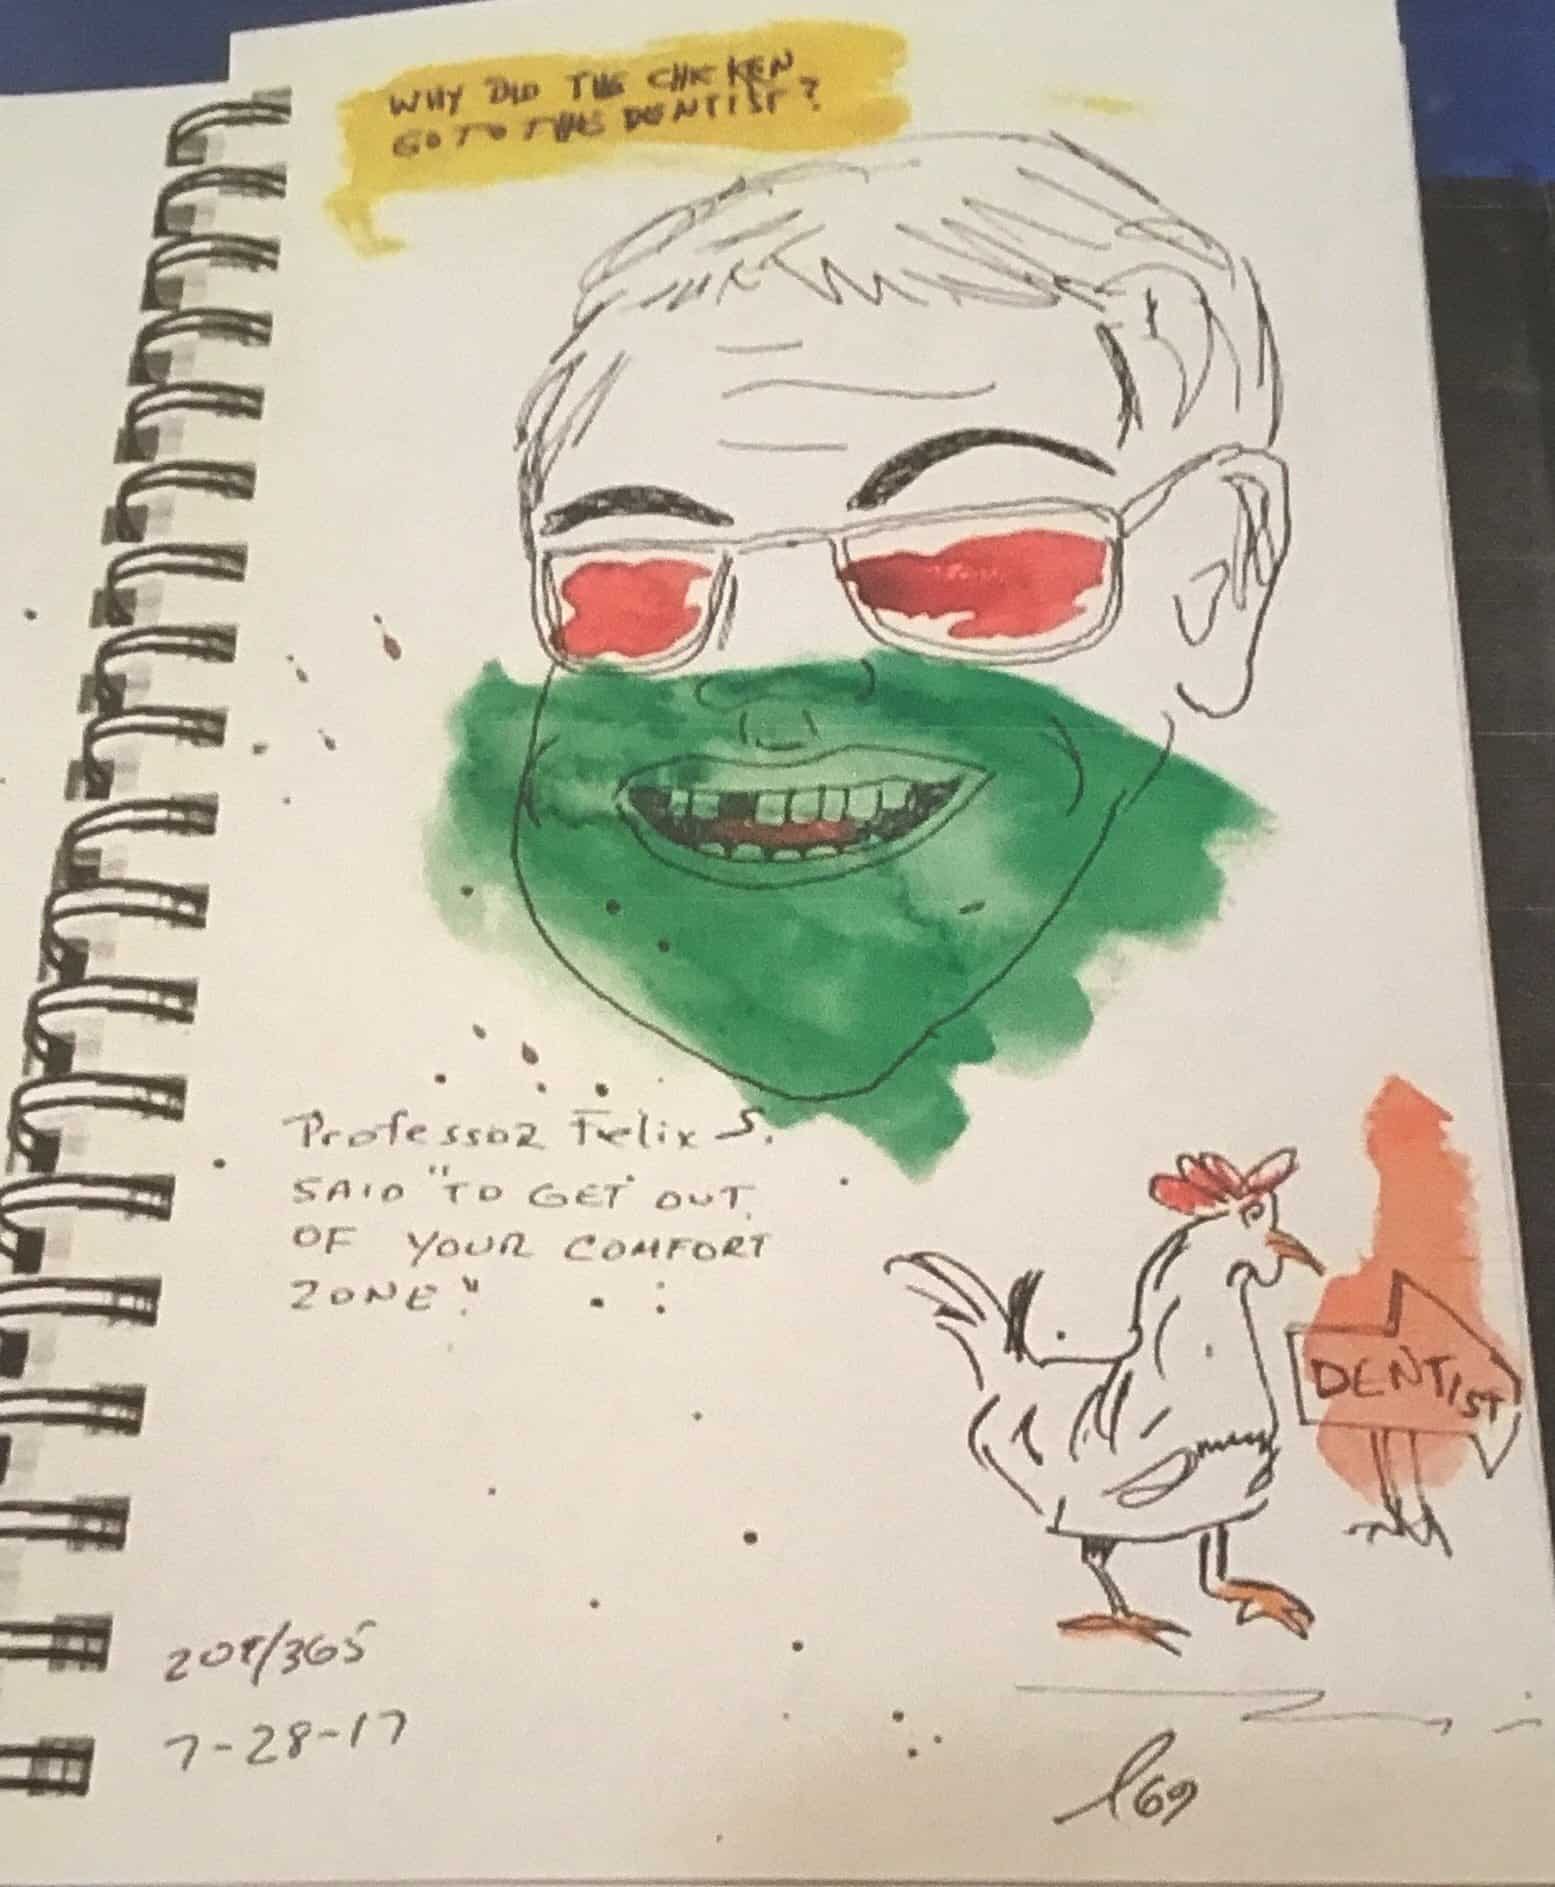 WHY DID THE CHICKEN
GO TO THE DENTIST?
Professor Felix S.
SAID "TO GET OUT
OF YOUR COMFORT
ZONE".
DENTIST
209/365
7-28-17
69